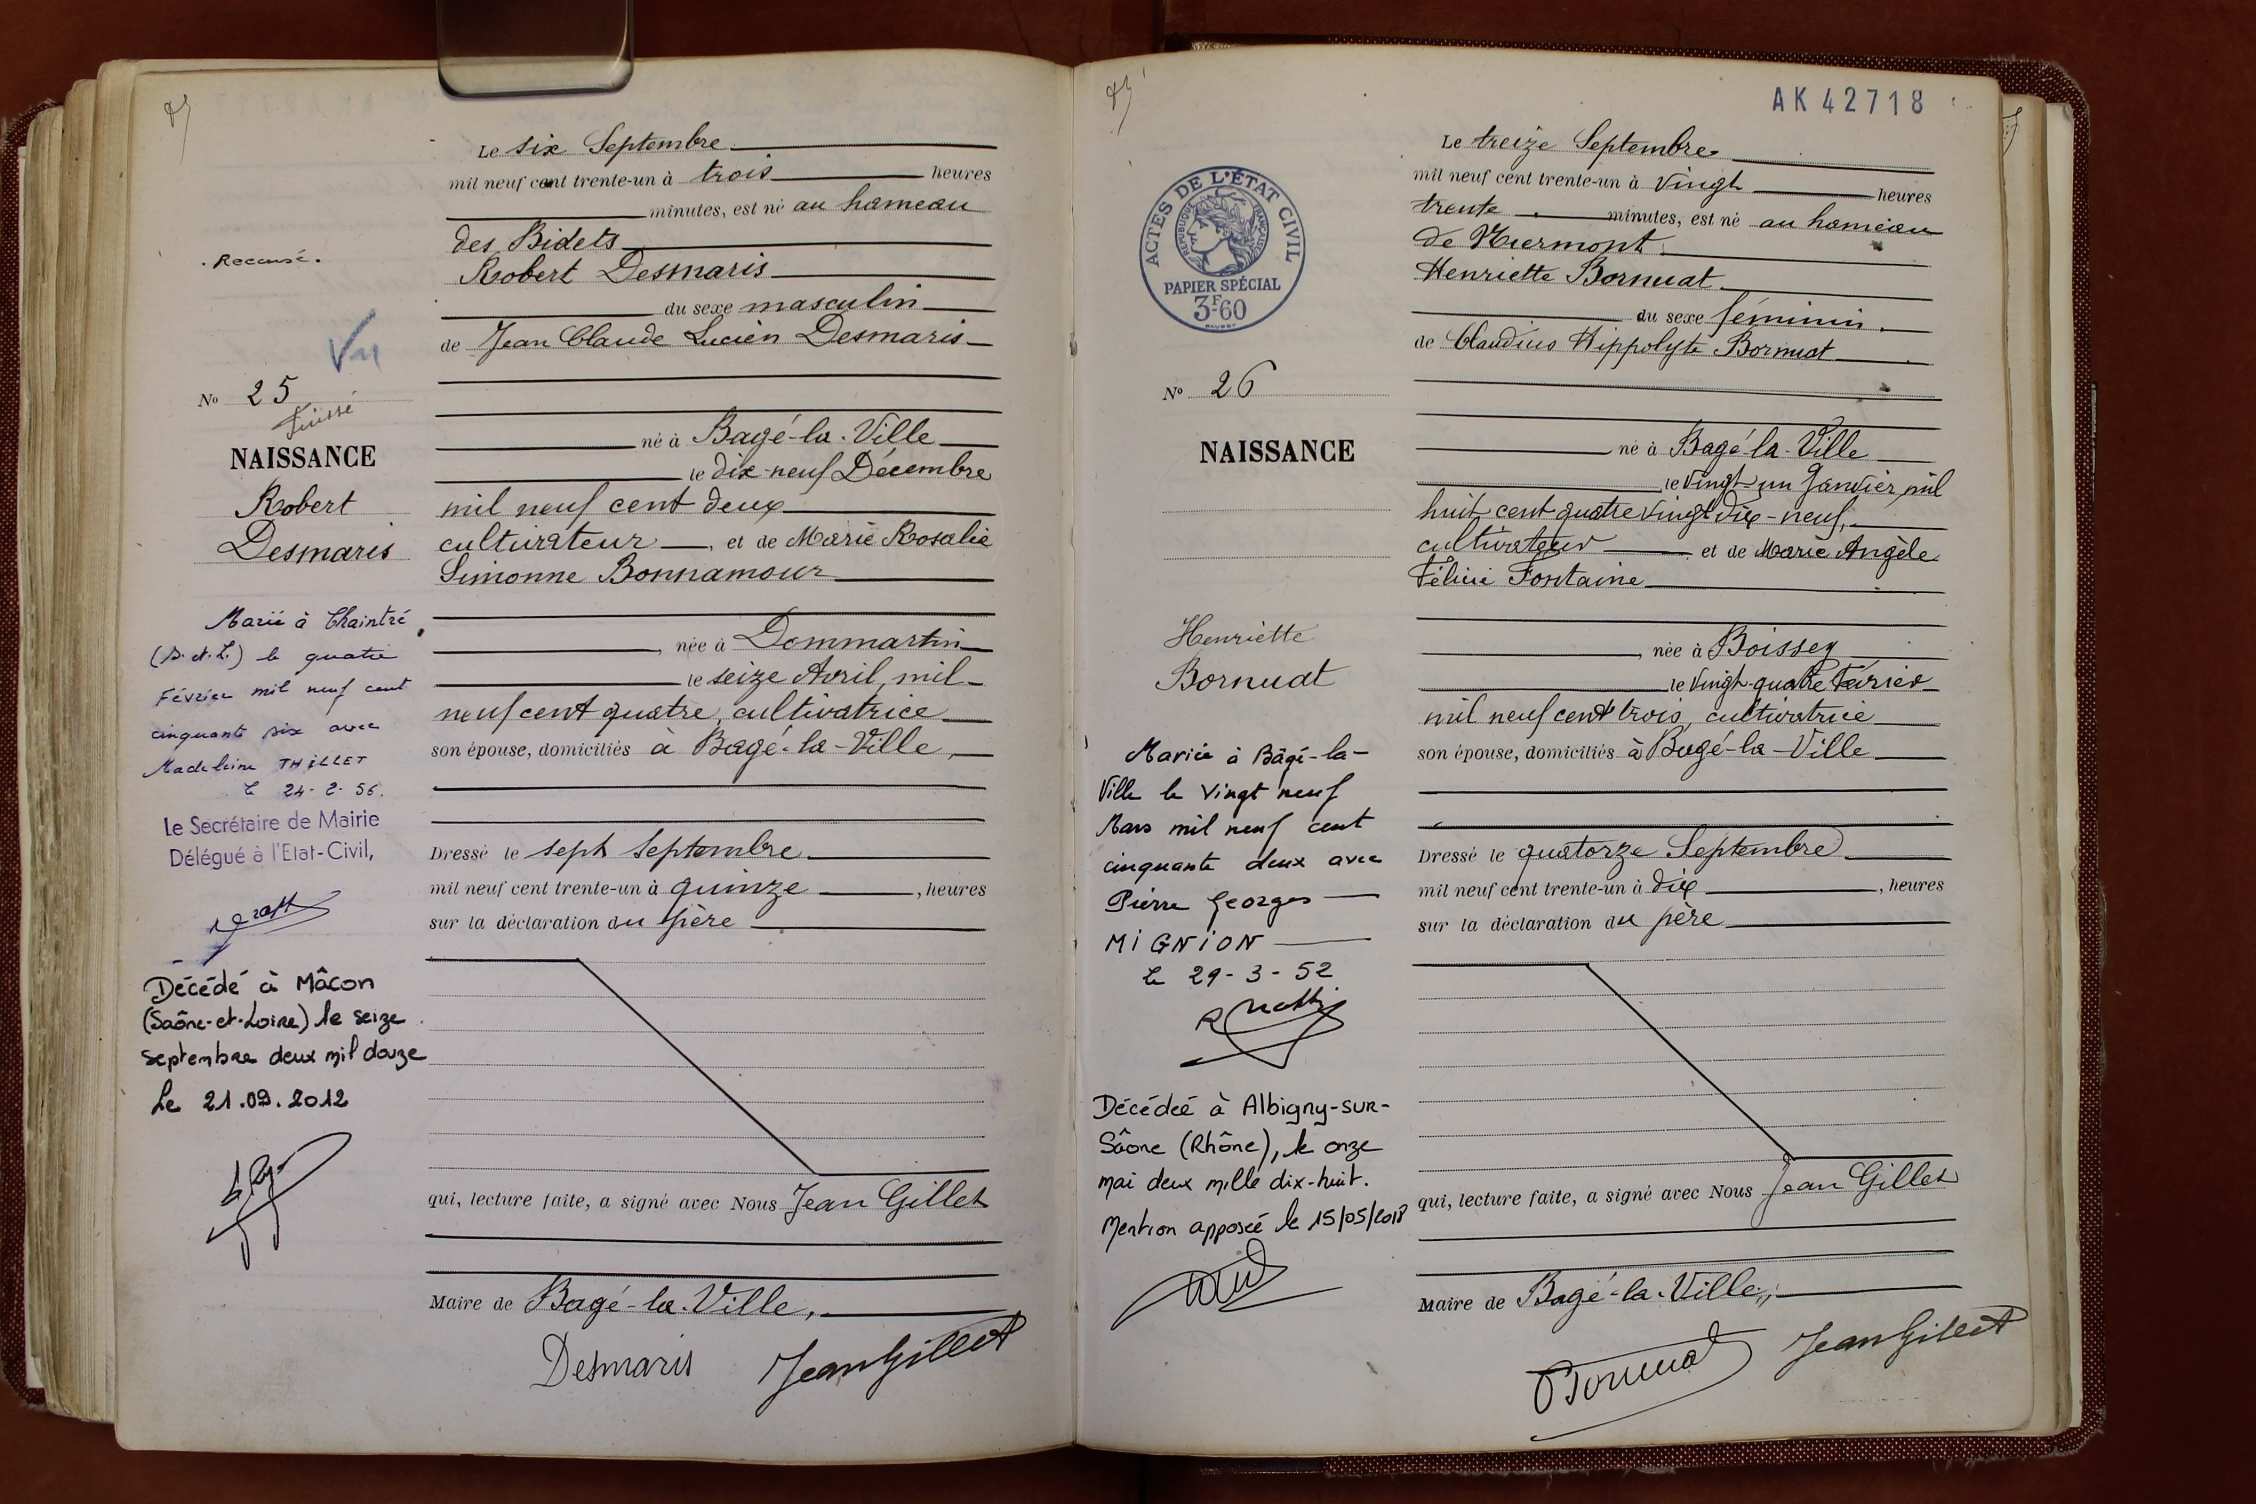 Le six Septembre
mil neuf cent trente-un à trois heures
minutes, est né au hameau
des Bidets
Robert Desmaris
du sexe masculin
de Jean Claude Lucien Desmaris
né à Bagé-la-Ville
le dix-neuf Décembre
mil neuf cent deux
cultivateur, et de Marie Rosalie
Simonne Bonnamour
, née à Dommartin
le seize Avril, mil
neuf cent quatre, cultivatrice
son épouse, domiciliés à Bagé-la-Ville,
Dressé le sept Septembre
mil neuf cent trente-un à quinze, heures
sur la déclaration du père
qui, lecture faite, a signé avec Nous Jean Gillet
Maire de Bagé-la-Ville,
Desmaris Jean Gillet
. Recensé.
Vu
No 25
NAISSANCE
Robert
Desmaris
Marié à Chaintré
(S.et.L.) le quatre
Février mil neuf cent
cinquante six avec
Madeleine THILLET
le 24-2-56.
Le Secrétaire de Mairie
Délégué à l'Etat-Civil,
Décédé à Mâcon
(Saône-et-Loire) le seize
septembre deux mil douze
Le 21.09.2012
AK 42718
Le treize Septembre
mil neuf cent trente-un à vingt heures
trente minutes, est né au hameau
de
Henriette Bornuat
du sexe féminin
de Claudius Hippolyte Bornuat
né à Bagé-la-Ville
le vingt-un Janvier mil
huit cent quatre vingt dix-neuf,
cultivateur et de Marie Angèle
Félicie Fontaine
, née à Boissey
le vingt-quatre Février
mil neuf cent trois, cultivatrice
son épouse, domiciliés à Bagé-la-Ville
Dressé le quatorze Septembre
mil neuf cent trente-un à dix, heures
sur la déclaration du père
qui, lecture faite, a signé avec Nous Jean Gillet
Maire de Bagé-la-Ville,
Bornuat Jean Gillet
ACTES DE L'ÉTAT CIVIL
RÉPUBLIQUE FRANÇAISE
PAPIER SPÉCIAL
3F60
No 26
NAISSANCE
Henriette
Bornuat
Mariée à Bâgé-la-
Ville le vingt neuf
Mars mil neuf cent
cinquante deux avec
Pierre Georges
MIGNION
le 29-3-52
Décédée à Albigny-sur-
Saône (Rhône), le onze
mai deux mille dix-huit.
Mention apposée le 15/05/2018